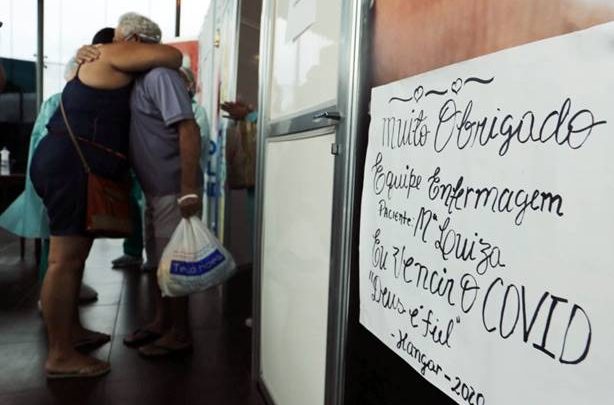 Muito Obrigado
Equipe Enfermagem
Paciente: Mª Louiza
Eu Vencir O COVID
"Deus é fiel"
-Hangar-2020